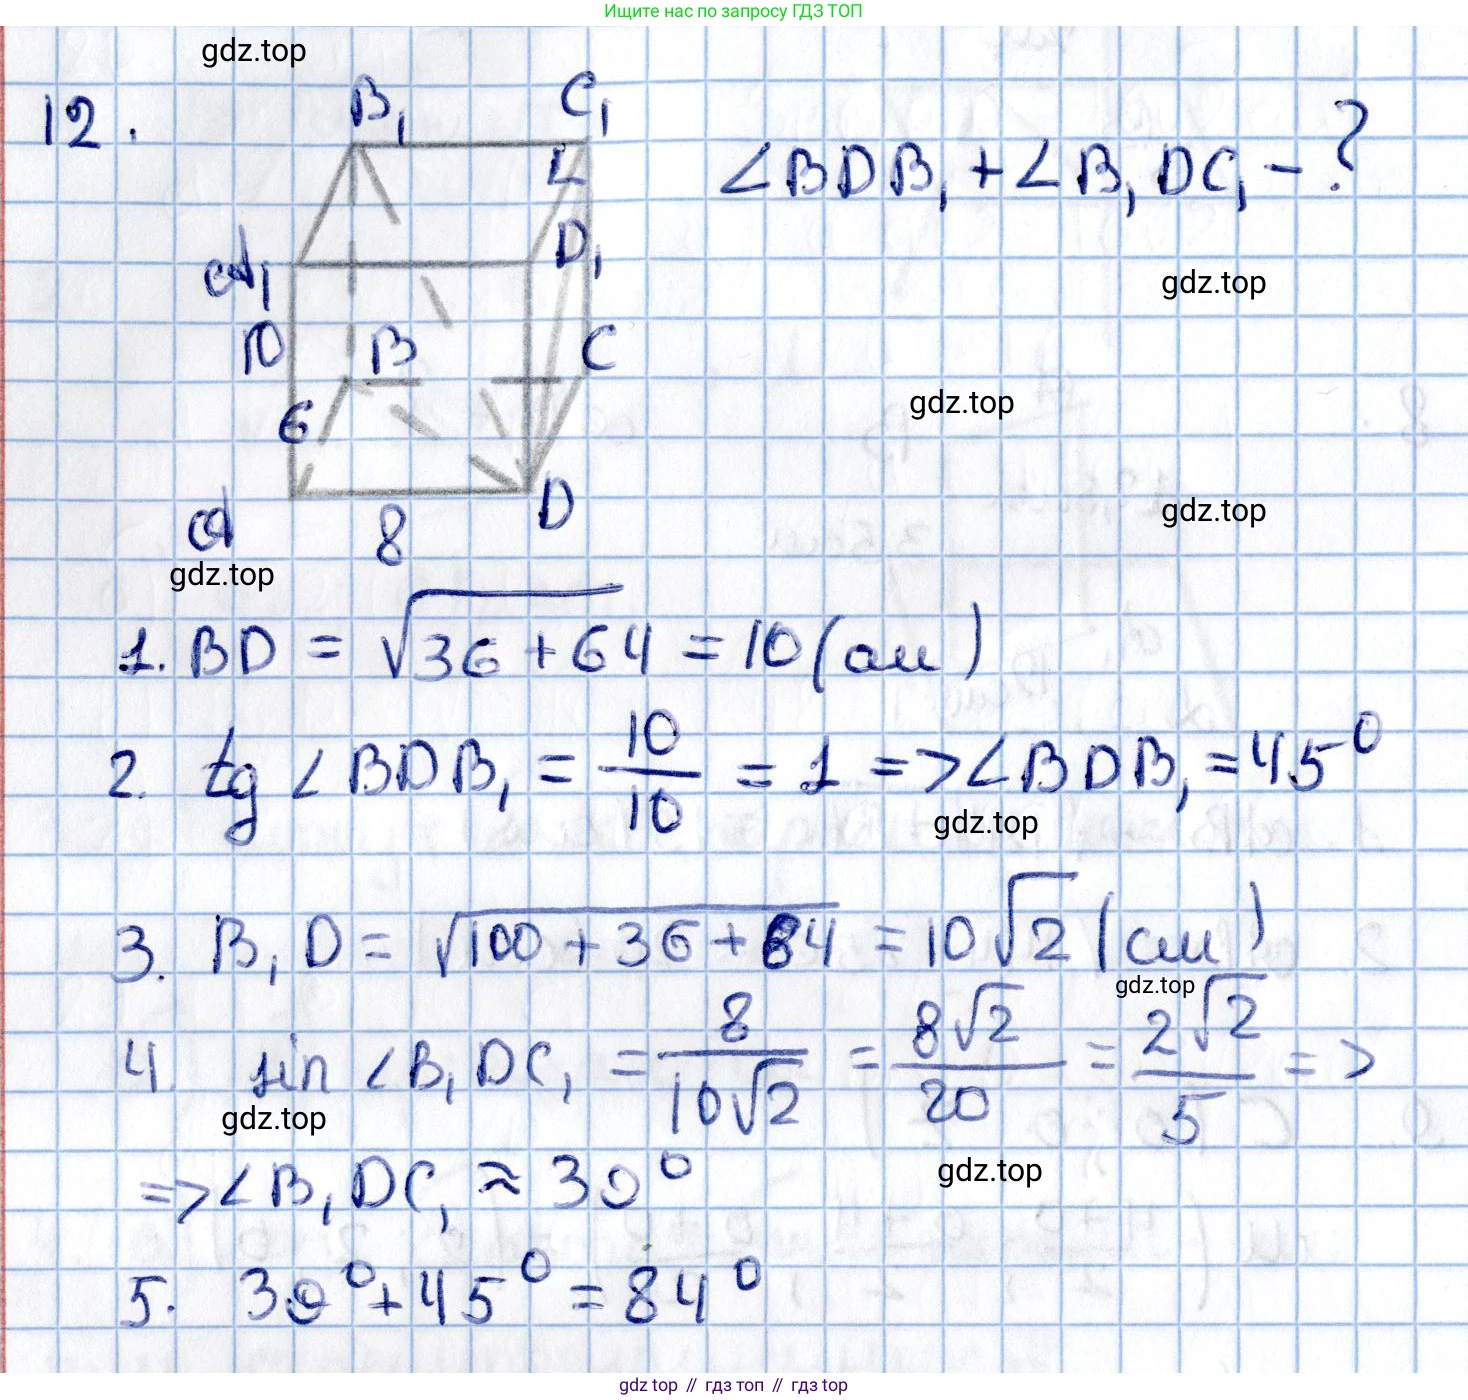 Ищите нас по запросу ГДЗ ТОП
gdz.top
12.
B₁
C₁
L
∠BDB₁ + ∠B₁DC₁ - ?
A₁
D₁
gdz.top
10
B
C
6
gdz.top
gdz.top
A
8
D
gdz.top
1. BD = √36+64 = 10 (см)
2. tg ∠BDB₁ = 10/10 = 1 => ∠BDB₁ = 45°
gdz.top
3. B₁D = √100+36+64 = 10√2 (см)
gdz.top
4. sin ∠B₁DC₁ = 8/10√2 = 8√2/20 = 2√2/5 =>
gdz.top
=> ∠B₁DC₁ ≈ 39°
gdz.top
5. 39° + 45° = 84°
gdz top // гдз топ // гдз top